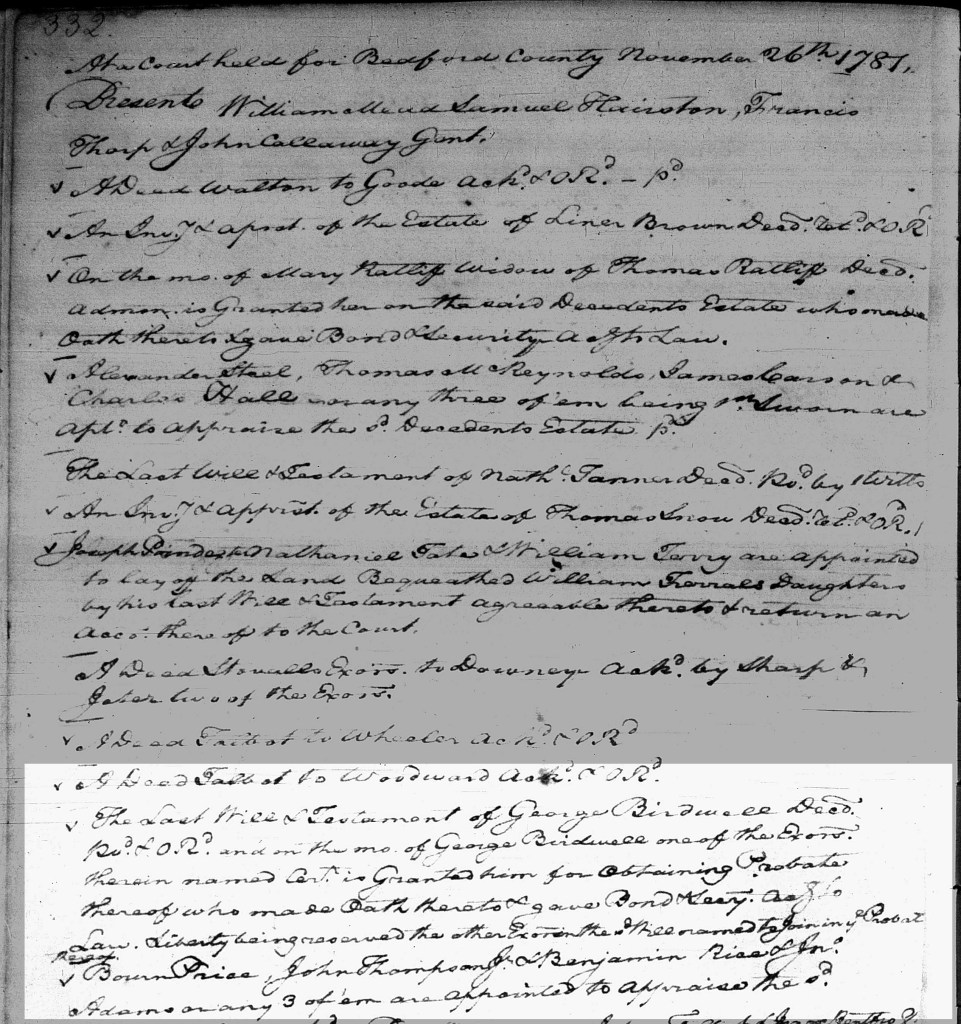 332.
At a Court held for Bedford County November 26th 1781,
Presents William Mead Samuel Hairston, Francis
Thorp & John Callaway Gent.
A Deed Walton to Goode Ackd. & ORd. – pd.
An Invy & Aprst. of the Estate of Liner Brown Decd. Retd. & OR
On the mo. of Mary Ratliff Widow of Thomas Ratliff Decd.
Admon. is Granted her on the said Decedents Estate who made
Oath thereto & gave Bond & Security Acg to Law.
Alexander Steel, Thomas McReynolds, James Carson &
Charles Hall or any three of'em being 1st Sworn are
Aptd. to appraise the sd. Decedents Estate pd.
The Last Will & Testament of Nathl. Tanner Decd. Pvd. by 1 Witts
An Invy & Apprst. of the Estate of Thomas Snow Decd. Retd. & ORd.
Joseph Nathaniel Tate & William Terry are appointed
to lay off the Land Bequeathed William Daughters
by his Last Will & Testament agreeable thereto & return an
Acco. thereof to the Court.
A Deed Stovalls Exors. to Downey Ackd. by Sharp &
Jeter two of the Exors.
A Deed Talbot to Wheeler Ackd. & ORd
A Deed Talbot to Woodward Ackd. & ORd.
The Last Will & Testament of George Birdwell Decd.
Pvd. & ORd. and on the mo. of George Birdwell one of the Exors.
therein named Cert. is Granted him for obtaining Probate
thereof who made Oath thereto & gave Bond & Secy. Acg to
Law. Liberty being reserved the other Exors in the sd Will named to Join in ye Probat
thereof
Bourn Price, John Thompson Jr. & Benjamin Rice & Jno.
Adams or any 3 of'em are appointed to appraise the sd.